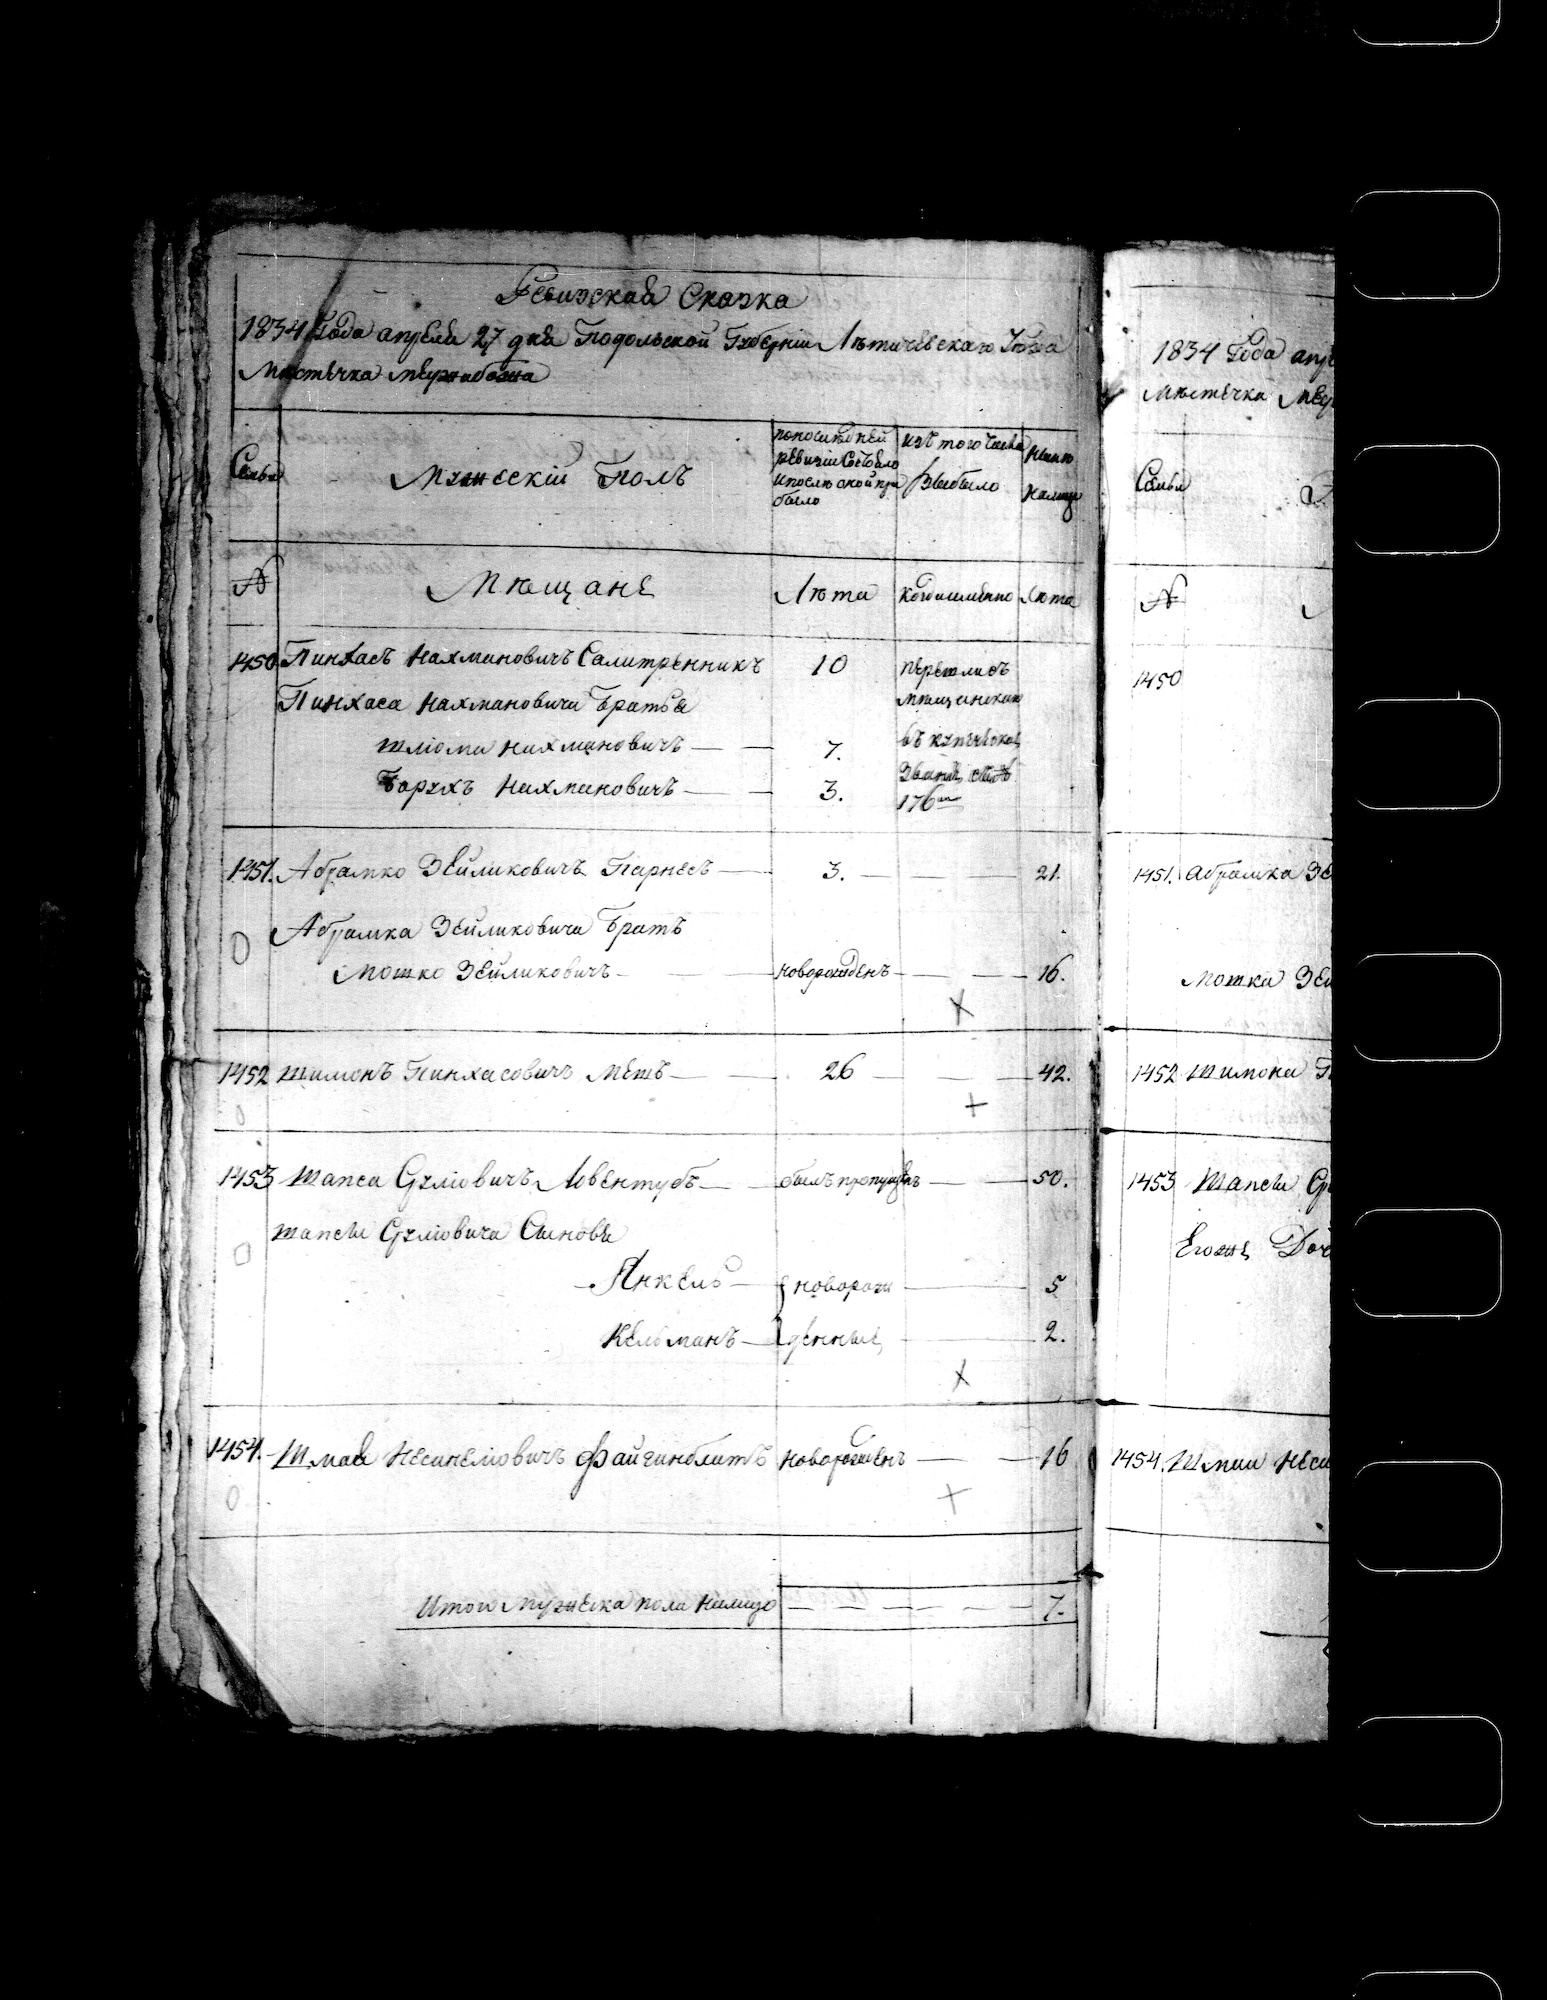 Ревизская Сказка
1834 Года апреля 27 дня Подольской Губерніи Лѣтичевскаго Уѣзда
Мѣстечка Межибожа
Семьи
Мужескій Полъ
по последней
ревизіи Состояло
и после оной при
было
изъ того Числа
Выбыло
Нынѣ
Налицо
№
Мѣщане
Лѣта
когда именно
Лѣта
1450 Пинхасъ Нахмановичъ Салитренникъ 10 перешли съ
Пинхаса Нахмановича Братья мещанскаго
Шліома Нахмановичъ 7. въ купеческое
Борухъ Нахмановичъ 3. Званіе
176
1451. Абрамко Зейликовичъ Парнесъ 3. 21.
Абрамка Зейликовича Братъ
Мошко Зейликовичъ новорожденъ 16.
1452 Шимонъ Пинхасовичъ 26 42.
1453 Шапса Сруліовичъ Ловентубъ былъ пропущенъ 50.
Шапсы Сруліовича Сыновья
Янкель новорож 5
Кельманъ денные 2.
1454. Шмая Несинеліовичъ Файгинблитъ новорожденъ 16
Итого Мужеска пола налицо 7.
1834 Года апре
Мѣстечка Меж
Семьи
№
1450
1451. Абрамка Зе
Мошка Зей
1452 Шимона П
1453 Шапсы Ср
Егоже Доч
1454. Шмаи Неси